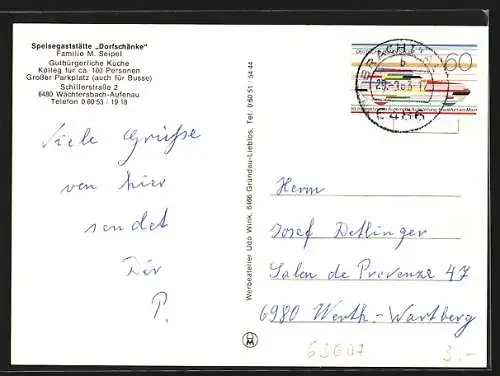 Speisegaststätte „Dorfschänke"
Familie M. Seipel
Gutbürgerliche Küche
Kolleg für ca. 100 Personen
Großer Parkplatz (auch für Busse)
Schillerstraße 2
6480 Wächtersbach-Aufenau
Telefon 0 60 53 / 19 18
Viele Grüße
von hier
sendet
Dir
P.
Werbeatelier Udo Wink, 6466 Gründau-Lieblos, Tel. 0 60 51 / 54 44
60
b
Herrn
Josef Dettinger
Salon de Provence 47
6980 Werth.-Wartberg
HM
63607
3.-